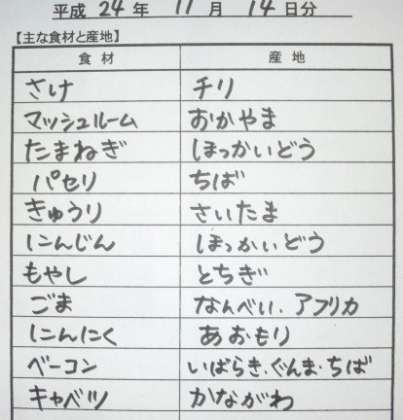 平成 24 年 11 月 14 日分
【主な食材と産地】
食材 産地
さけ チリ
マッシュルーム おかやま
たまねぎ ほっかいどう
パセリ ちば
きゅうり さいたま
にんじん ほっかいどう
もやし とちぎ
ごま なんべい．アフリカ
にんにく あおもり
ベーコン いばらき・ぐんま・ちば
キャベツ かながわ